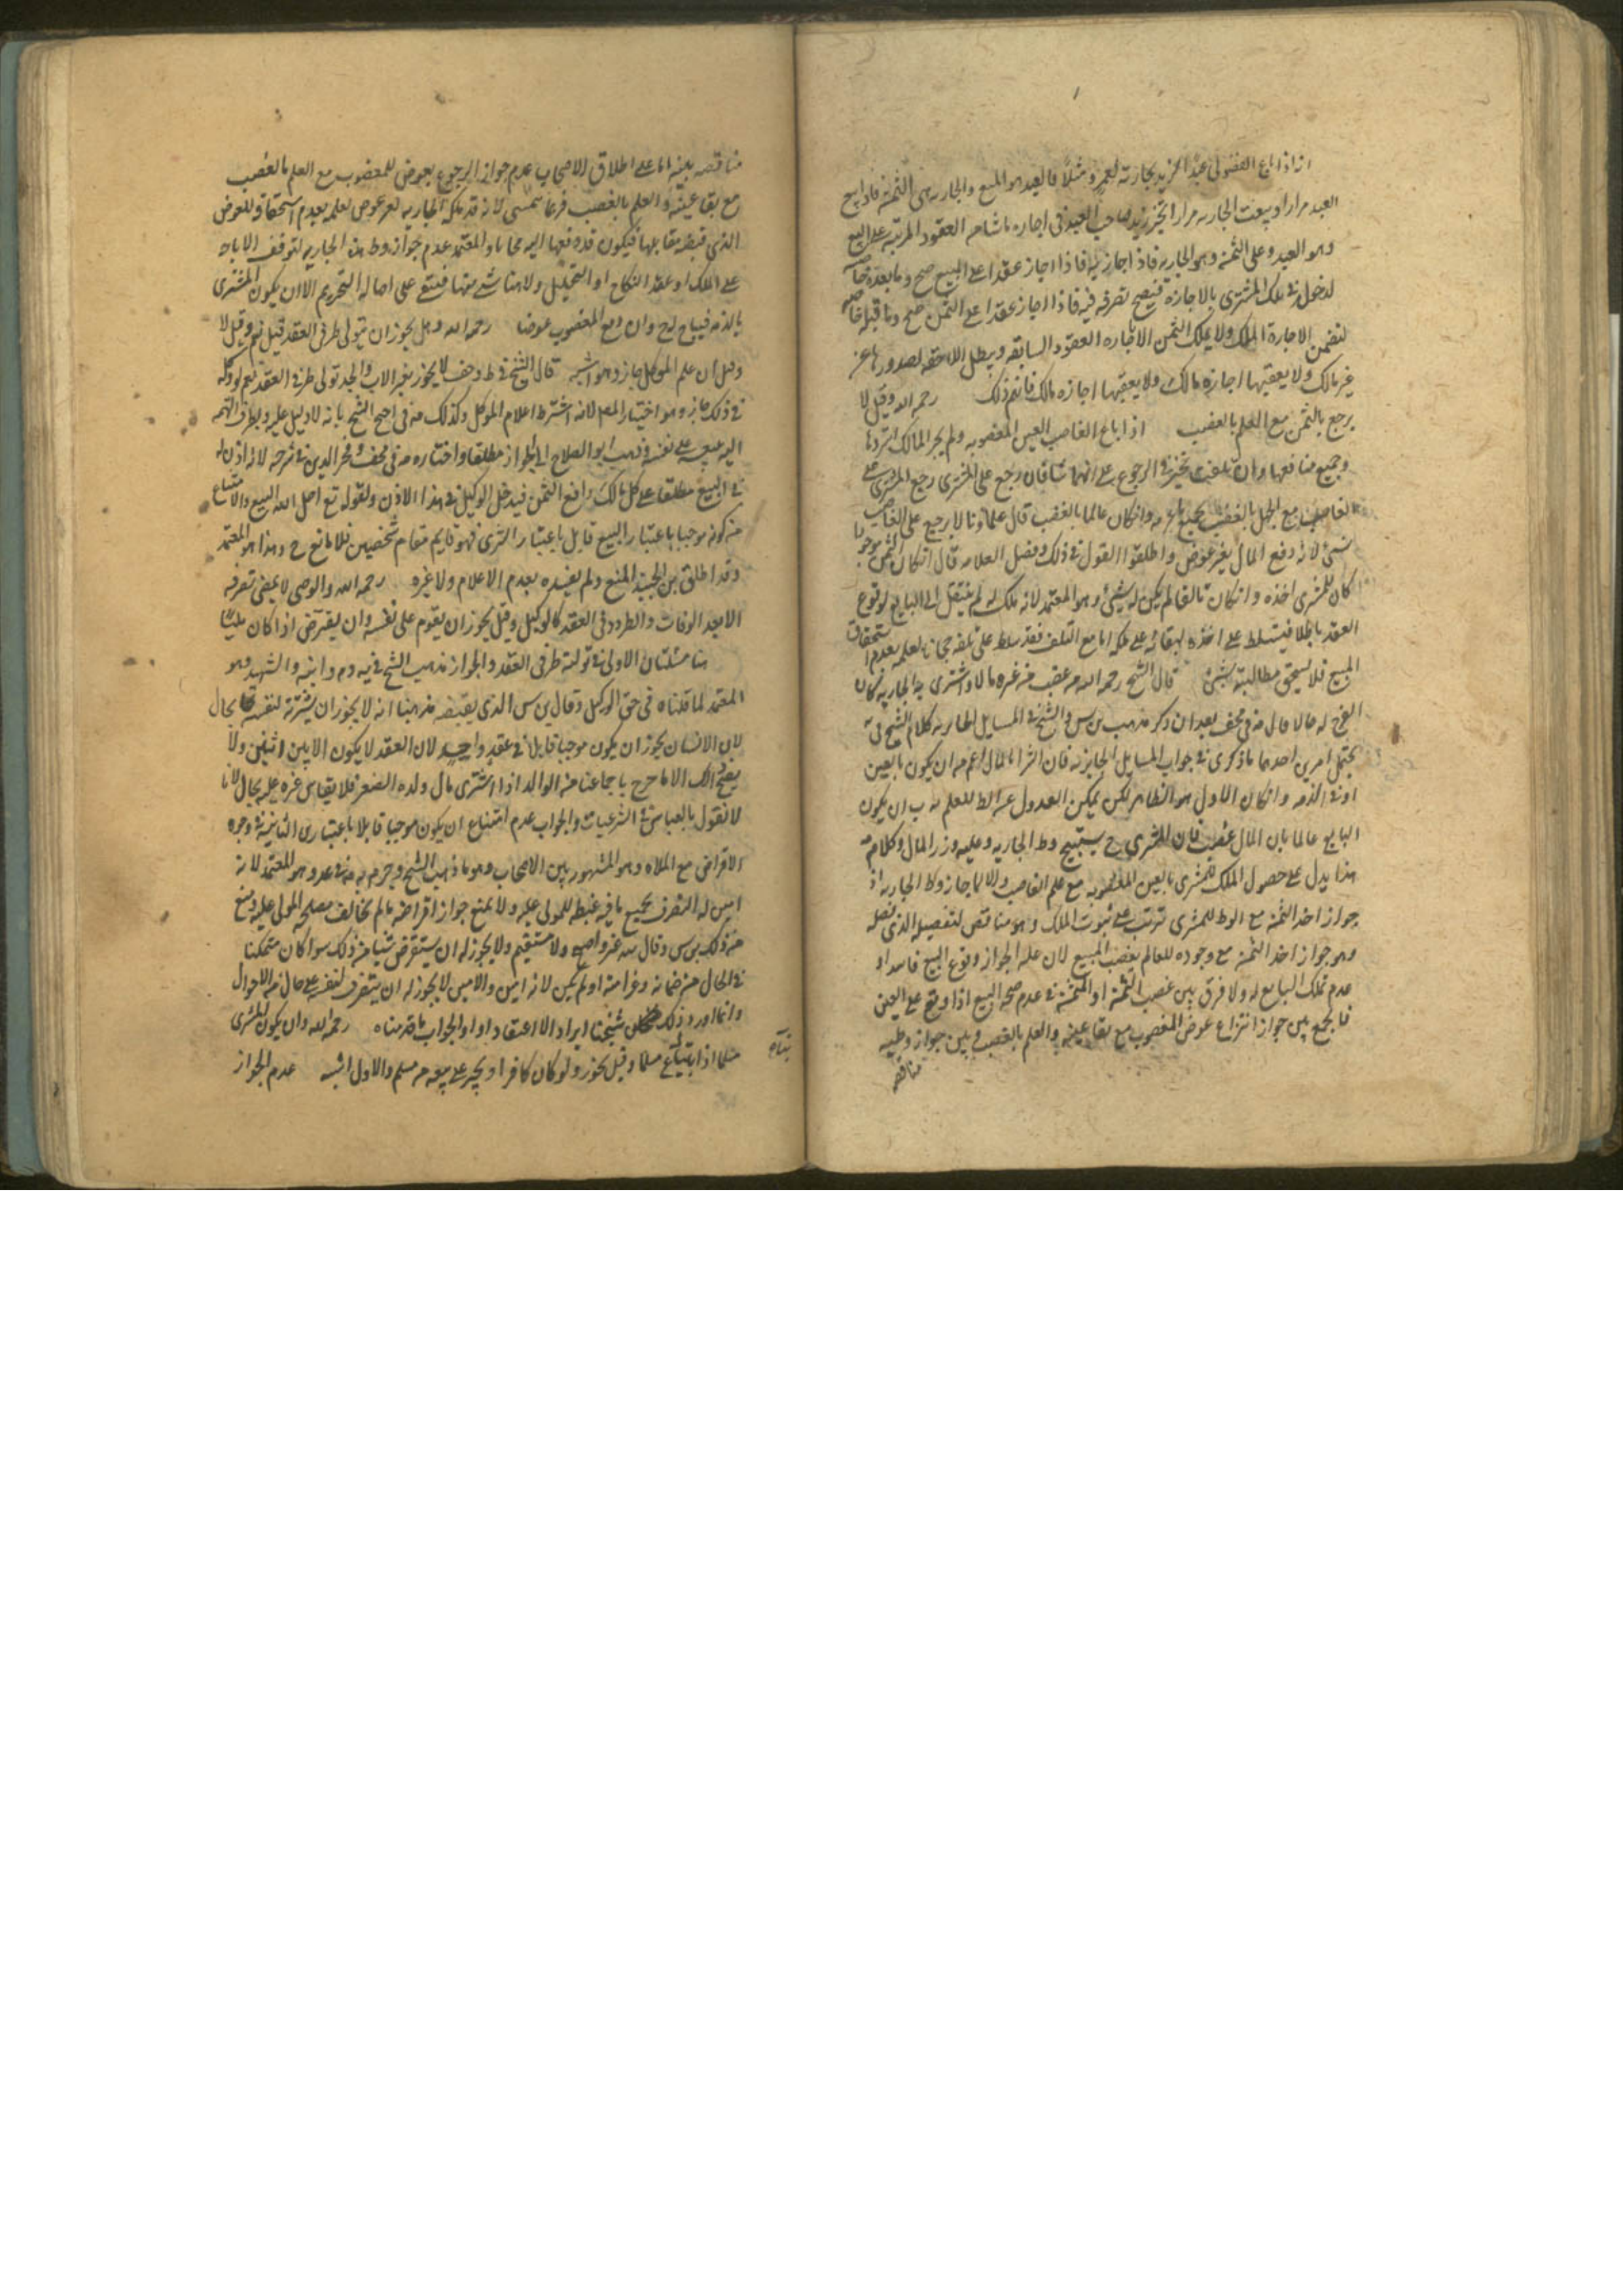 اذا باع الفضولى عبدا لزيد بجارية لعمرو مثلا فالعبد هو المبيع والجارية هى الثمن فاذا بيع
العبد مرارا وبيعت الجارية مرارا تخير زيد صاحب العبد فى اجازة ما شا من العقود المرتبة على المبيع
وهو العبد وعلى الثمن وهو الجارية فاذا اجاز عقدا على المبيع صح وما بعده خاصة
لدخوله فى ملك المشترى بالاجازة فيصح تصرفه فيه فاذا اجاز عقدا على الثمن صح وما قبله خاصة
لتضمن الاجازة الملك ولا يملك الثمن الا باجازة العقود السابقة ويبطل اللاحقة لصدورها عن
غير مالك ولا يعقبها اجازة مالك فافهم ذلك رحمه الله وقيل لا
يرجع بالثمن مع العلم بالغصب اذا باع الغاصب العين المغصوبة ولم يجز المالك استردها
وجميع منافعها وان تلفت تخير فى الرجوع على ايهما شا فان رجع على المشترى رجع المشترى على
الغاصب مع الجهل بالغصب بجميع وان كان عالما بالغصب قال علماؤنا لا يرجع على الغاصب
بشئ لانه دفع المال بغير عوض واطلقوا القول فى ذلك وفصل العلامة قال ان كان الثمن موجودا
كان للمشترى اخذه وان كان تالفا لم يكن له شئ وهو المعتمد لانه ملك له لم ينتقل الى البايع لوقوع
العقد باطلا فيتسلط على اخذه لبقائه على ملكه اما مع التلف فقد سلط على تلفه مجانا لعلمه بعدم استحقاق
المبيع فلا يستحق مطالبته بشئ قال الشيخ رحمه الله من غصب من غيره مالا واشترى به جارية كان
الفرج له حلالا قال فى مختلف بعد ان ذكر مذهب بن س والشيخ فى المسايل الحايرية كلام الشيخ فى
يحتمل امرين احدهما ما ذكرى فى جواب المسايل الحايرية فان الشرا بالمال اعم من ان يكون بالعين
او فى الذمة وان كان الاول هو الظاهر لكن يمكن العدول عن الظاهر للعلم به ب ان يكون
البايع عالما بان المال غصب فان المشترى ح يستبيح وطى الجارية وعليه وزر المال وكلامه
هذا يدل على حصول الملك للمشترى بالعين المغصوبة مع علم الغاصب والا لما جاز وطى الجارية اذ
جواز اخذ الثمن مع الوطى للمشترى ترتب على ثبوت الملك وهو مناقض لتفصيله الذى فصله
وهو جواز اخذ الثمن مع وجوده للعالم بغصب المبيع لان علة الجواز وقوع البيع فاسدا و
عدم تملك البايع له ولا فرق بين غصب الثمن او المثمن فى عدم صحة البيع اذا وقع على العين
فالجمع بين جواز انتزاع عوض المغصوب مع بقا عينه والعلم بالغصب وبين جواز وطيه
مناقضه
مناقضه بينة اما على اطلاق الاصحاب عدم جواز الرجوع بعوض المغصوب مع العلم بالغصب
مع بقا عينه والعلم بالغصب فربما تمشى لانه قد ملكه الجارية بغير عوض لعلمه بعدم استحقاقه العوض
الذى قبضه مقابلها فيكون قد دفعها اليه مجانا والمعتمد عدم جواز وطى هذه الجارية لتوقف الاباحة
على الملك او عقد النكاح او التحليل ولا هنا شئ منها فتبقى على اصالة التحريم الا ان يكون المشترى
بالذمة فيباح له ح وان دفع المغصوب عوضا رحمه الله وهل يجوز ان يتولى طرفى العقد قيل نعم وقيل لا
وقيل ان علم الموكل جاز وهو اشبه قال الشيخ فى ط وخف لا يجوز بغير الاب والجد تولى طرفى العقد نعم لو وكله
فى ذلك جاز وهو اختيار المص لانه اشترط اعلام الموكل وكذلك فى احتج الشيخ بانه لا دليل عليه وبطرف التهمة
اليه ببيعه على نفسه وذهب ابو الصلاح الى الجواز مطلقا واختاره فى مختلف وفخر الدين فى شرحه لانه اذن له
فى البيع مطلقا على كل مالك دافع الثمن فيدخل الوكيل فى هذا الاذن ولقوله تع احل الله البيع والامتناع
من كونه موجبا باعتبار البيع قابل باعتبار الشرى فهو قايم مقام شخصين فلا مانع ح وهذا هو المعتمد
وقد اطلق بن الجنيد المنع ولم يقيده بعدم الاعلام ولا غيره رحمه الله والوصى لا يمضى تصرفه
الا بعد الوفات والتردد فى العقد كالوكيل وقيل يجوز ان يقوم على نفسه وان يقترض اذا كان مليا
هنا مسئلتان الاولى فى توليته طرفى العقد والجواز مذهب الشيخ فى يه و وابنه والشهيد وهو
المعتمد لما قلناه فى حق الوكيل وقال بن س الذى يقتضيه مذهبنا انه لا يجوز ان يشتريه لنفسه بحال
لان الانسان يجوز ان يكون موجبا قابلا فى عقد واحد لان العقد لا يكون الا بين اثنين ولا
يصح ذلك الا ما خرج باجماعنا من الوالد اذا اشترى مال ولده الصغير فلا يقاس غيره عليه بحال لانا
لا نقول بالقياس فى الشرعيات والجواب عدم امتناع ان يكون موجبا قابلا باعتبارى الثانية فى وجوه
الاقراض مع الملاه وهو المشهور بين الاصحاب وهو مذهب الشيخ وجزم به فى عد وهو المعتمد لانه
امين له التصرف بجميع ما فيه غبطة للمولى عليه ولا يمنع جواز اقراضه ما لم يخالف مصلحة المولى عليه ومنع
من ذلك بن س وقال هذه غير واضح ولا مستقيم ولا يجوز له ان يستقرض شيئا من ذلك سوا كان متمكنا
فى الحال من ضمانه وغرامته او لم يكن لانه امين والامين لا يجوز له ان يتصرف لنفسه على حال من الاحوال
وانما اورد ذلك شيخنا ايرادا لا اعتقادا والجواب ما قدمناه رحمه الله وان يكون المشترى
مسلما اذا ابتاع مسلما وقيل يجوز ولو كان كافرا ويجبر على بيعه من مسلم والاول اشبه عدم الجواز